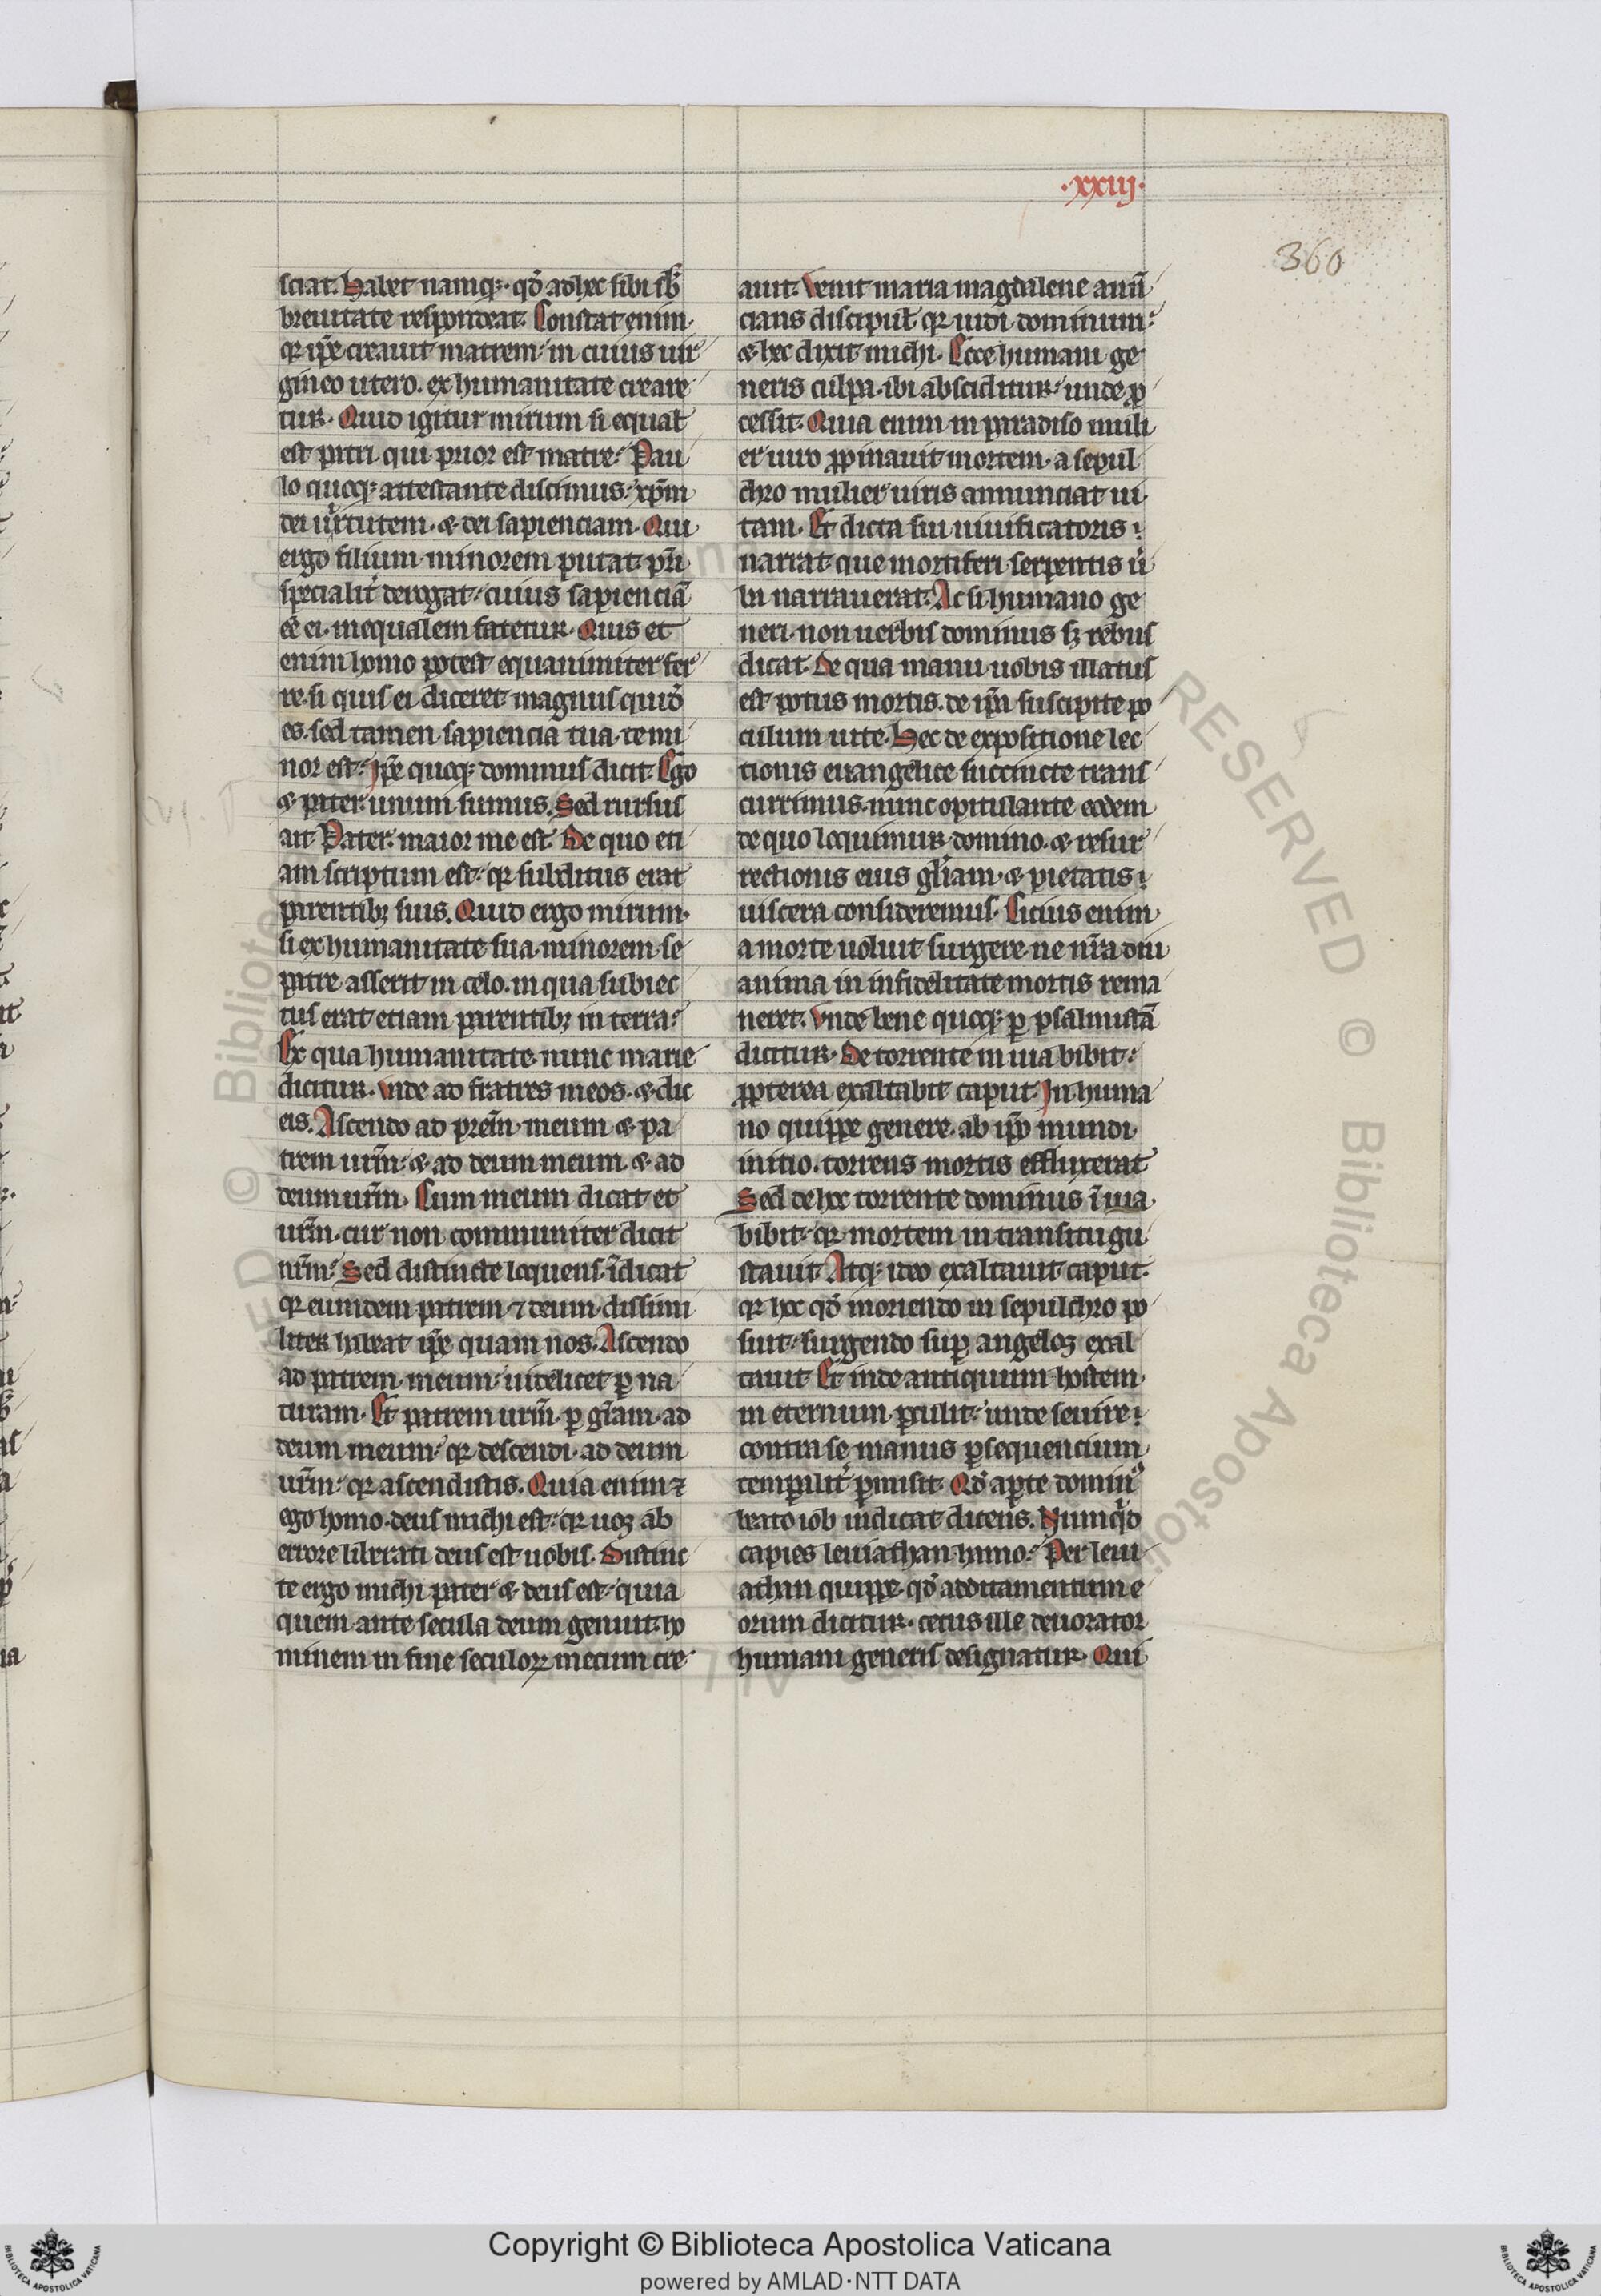 ·xxiij·
360
sciat. Habet namq;. qđ adhec sibi sƀ
breuitate respondeat. Constat enim
qꝛ ip̄e creauit matrem. in cuius uir
gineo utero. ex humanitate creare
tur. Quid igitur mirum si equaƚ
est patri qui prior est matre. Pau
lo quoq; attestante discimus. xp̄m
dei uirtutem. ⁊ dei sapienciam. Qui
ergo filium minorem putat. pr̄i
specialit̾ derogat. cuius sapienciā
eē ei. inequalem fatetur. Quis et
enim homo potest equanimiter fer
re. si quis ei diceret magnus quidē
es. sed tamen sapiencia tua. te mi
nor est. Ip̄e quoq; dominus dicit. Ego
⁊ pater. unum sumus. Sed rursus
ait Pater. maior me est. De quo eti
am scriptum est. qꝛ subditus erat
parentibꝫ suis. Quid ergo mirum.
si ex humanitate sua. minorem se
patre asserit in celo. in qua subiec
tus erat etiam parentibꝫ in terra.
Ex qua humanitate nunc marie
dicitur. Vade ad fratres meos. ⁊ dic
eis. Ascendo ad pr̄em meum ⁊ pa
trem ur̄m. ⁊ ad deum meum. ⁊ ad
deum ur̄m. Cum meum dicat et
ur̄m. cur non communiter dicit
nr̄m. Sed distincte loquens. īdicat
qꝛ eumdem patrem ⁊ deum. dissimi
liter habeat ip̄e quam nos. Ascendo
ad patrem meum. uidelicet ꝑ na
turam. Et patrem ur̄m. ꝑ gr̄am. ad
deum meum. qꝛ descendi. ad deum
ur̄m. qꝛ ascendistis. Quia enim ⁊
ego homo. deus michi est. qꝛ uos ab
errore liberati deus est uobis. Distinc
te ergo michi pater ⁊ deus est. quia
quem ante secula deum genuit. ho
minem in fine seculoꝝ mecum cre
auit. Venit maria magdalene anū
cians discipuƚ. qꝛ uidi dominum.
⁊ hec dixit michi. Ecce humani ge
neris culpa. ibi absciditur. unde ꝓ
cessit. Quia enim in paradiso muli
er uiro ꝓpinauit mortem. a sepul
chro mulier uiris annunciat ui
tam. Et dicta sui uiuificatoris.
narrat. que mortiferi serpentis ū
ba narrauerat. Ac si humano ge
neri. non uerbis dominus sꝫ rebus
dicat. De qua manu uobis illatus
est potus mortis. de ip̄a suscipite po
culum uite. Hec de expositione lec
tionis euangelice succincte trans
currimus. nunc opitulante eodem
de quo loquimur domino. ⁊ resur
rectionis eius gl̄iam. ⁊ pietatis.
uiscera consideremus. Citius enim
a morte uoluit surgere. ne nr̄a diu
anima in infidelitate mortis rema
neret. Vnde bene quoq; ꝑ psalmistā
dicitur. De torrente in uia bibit.
ꝓpterea exaltabit caput. In huma
no quippe genere. ab ip̄o mundi
initio. torrens mortis effluxerat
Sed de hoc torrente dominus ī uia
bibit. qꝛ mortem in transitu gu
stauit Atq; ideo exaltauit caput.
qꝛ hoc qđ moriendo in sepulchro po
suit. surgendo suꝑ angelos exal
tauit Et inde antiquum hostem
in eternum ꝑculit. unde seuire.
contra se manus ꝑsequencium
temporalit̾ ꝑmisit. Qđ aperte dominꝰ
beato iob indicat dicens. Numqd
capies leuiathan hamo. Per leui
athan quippe. qđ additamentum e
orum dicitur. cetus ille deuorator
humani generis designatur. Qui
Copyright © Biblioteca Apostolica Vaticana
powered by AMLAD·NTT DATA